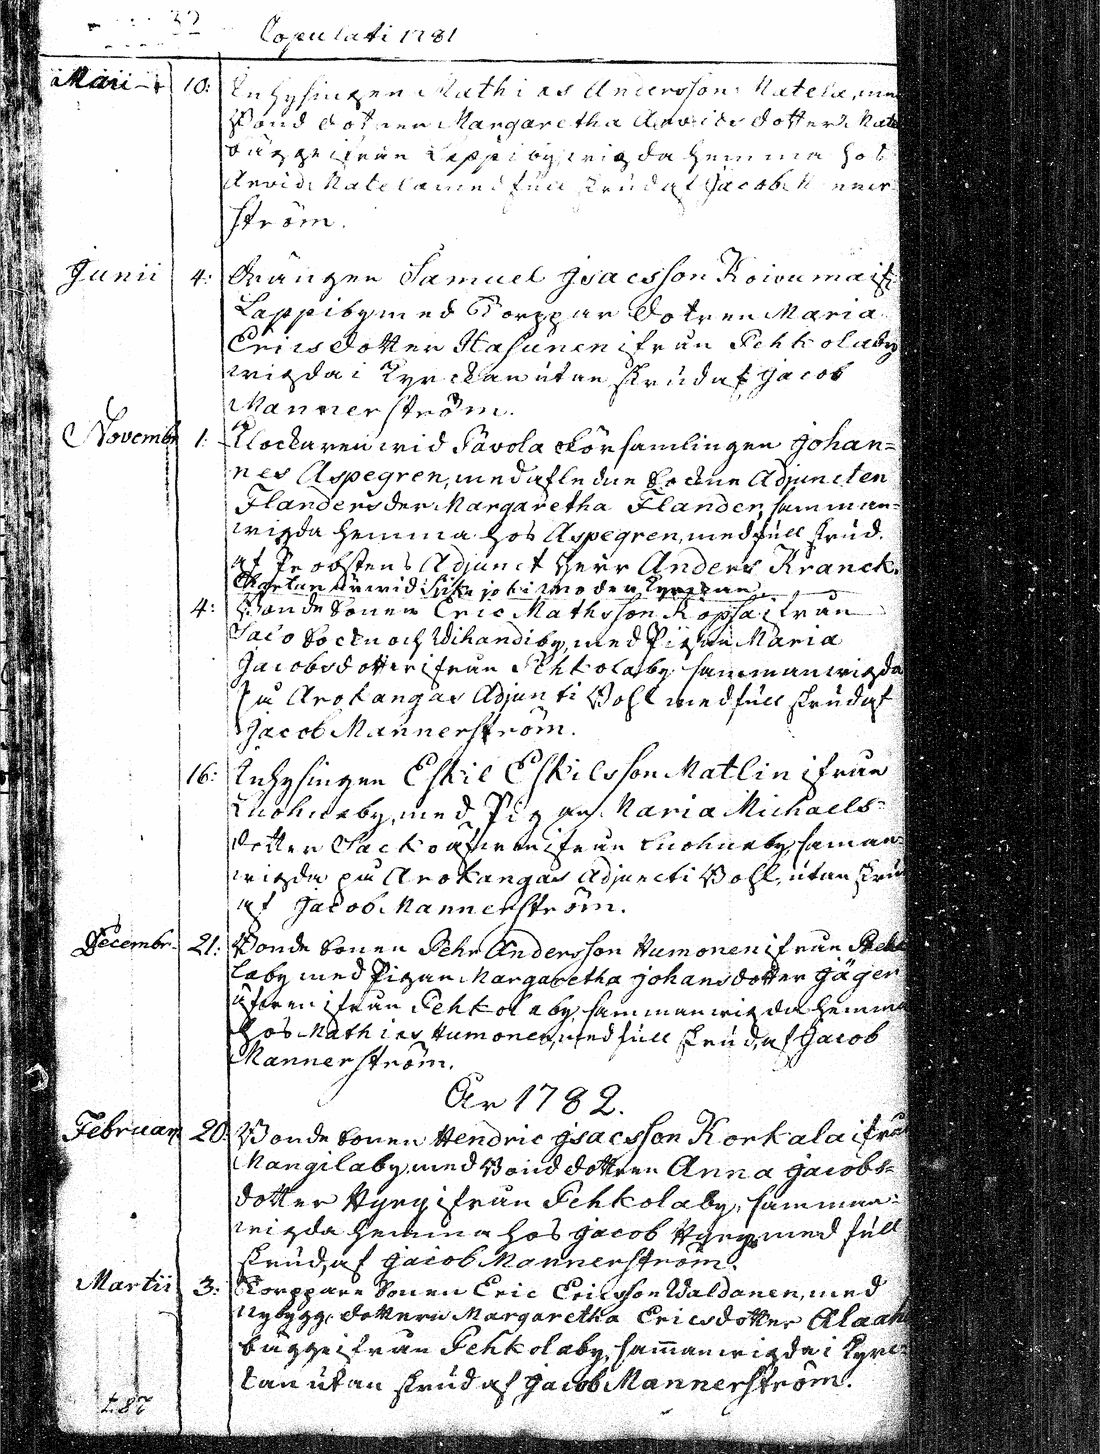 32
Copulati 1781
Maii 10: Inhysingen Mathias Andersson Matela, med
Bond dottren Margaretha Arvids dotter Mate
ifrån Lappiby, wigda hemma hos
Arvid Matela med full skrud af Jacob Manner
ström.
Junii 4: Drängen Samuel Jsacsson Koivuma if:
Lappiby med Torppar dotren Maria
Ericsdotter Hasunen ifrån Pehkolaby
wigda i Kyrckan utan skrud af Jacob
Mannerström.
Novembr 1: Klockaren wid Pavola Församlingen Johan=
nes Aspegren, med afledne Adjuncten
Flanders der Margaretha Flander, samman=
wigda hemma hos Aspegren, med full skrud.
af Probstens Adjunct Herr Anders Kranck.
wid Sikajoki moder Kyrckan
4: Bonde Sonen Eric Mathsson Kopsa ifrån
Salo Sockn och Wihandiby, med Pigan Maria
Jacobsdotter ifrån Pehkolaby sammanwigda
på Arokangas Adjuncti Bohl med full skrud af
Jacob Mannerström.
16: Inhysingen Eskil Eskilsson Matlin ifrån
Luohuaby, med Pigan Maria Michaels=
dotter Sacko ifrån Luohuaby, samman=
wigda på Arokangas Adjuncti Bohl, utan skrud
af Jacob Mannerström.
Decembr. 21: Bonde Sonen Pehr Andersson Humonen ifrån Pehko
laby med Pigan Margaretha Johansdotter Jäger
ifrån Pehkolaby, sammanwigda hemma
hos Mathies Humonen, med full skrud, af Jacob
Mannerström.
År 1782.
Februari 20: Bonde Sonen Hendric Jsacsson Korkala ifrån
Mangilaby, med Bond dottren Anna Jacobs=
dotter Hyry ifrån Pehkolaby, samman=
wigda hemma hos Jacob Hyry med full
skrud, af Jacob Mannerström.
Martii 3: Torppare Sonen Eric Ericsson Waldanen, med
Nybygg. dottren Margaretha Ericsdotter Alaah
ifrån Pehkolaby, sammanwigda i Kyrc=
kan utan skrud af Jacob Mannerström.